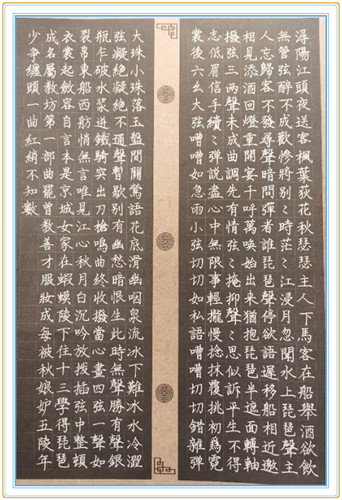 潯陽江頭夜送客楓葉荻花秋瑟瑟主人下馬客在船舉酒欲飲
無管弦醉不成歡慘將別〻時茫〻江浸月忽聞水上琵琶聲主
人忘歸客不發尋聲暗問彈者誰琵琶聲停欲語遲移船相近邀
相見添酒回燈重開宴千呼萬喚始出來猶抱琵琶半遮面轉軸
撥弦三兩聲未成曲調先有情弦〻掩抑聲〻思似訴平生不得
志低眉信手續〻彈說盡心中無限事輕攏慢捻抹復挑初為霓
裳後六么大弦嘈嘈如急雨小弦切切如私語嘈嘈切切錯雜彈
大珠小珠落玉盤間關鶯語花底滑幽咽泉流冰下難冰水冷澀
弦凝絕凝絕不通聲暫歇別有幽愁暗恨生此時無聲勝有聲銀
瓶乍破水漿迸鐵騎突出刀槍鳴曲終收撥當心畫四弦一聲如
裂帛東船西舫悄無言唯見江心秋月白沉吟放撥插弦中整頓
衣裳起斂容自言本是京城女家在蝦蟆陵下住十三學得琵琶
成名屬教坊第一部曲罷曾教善才服妝成每被秋娘妒五陵年
少爭纏頭一曲紅綃不知數